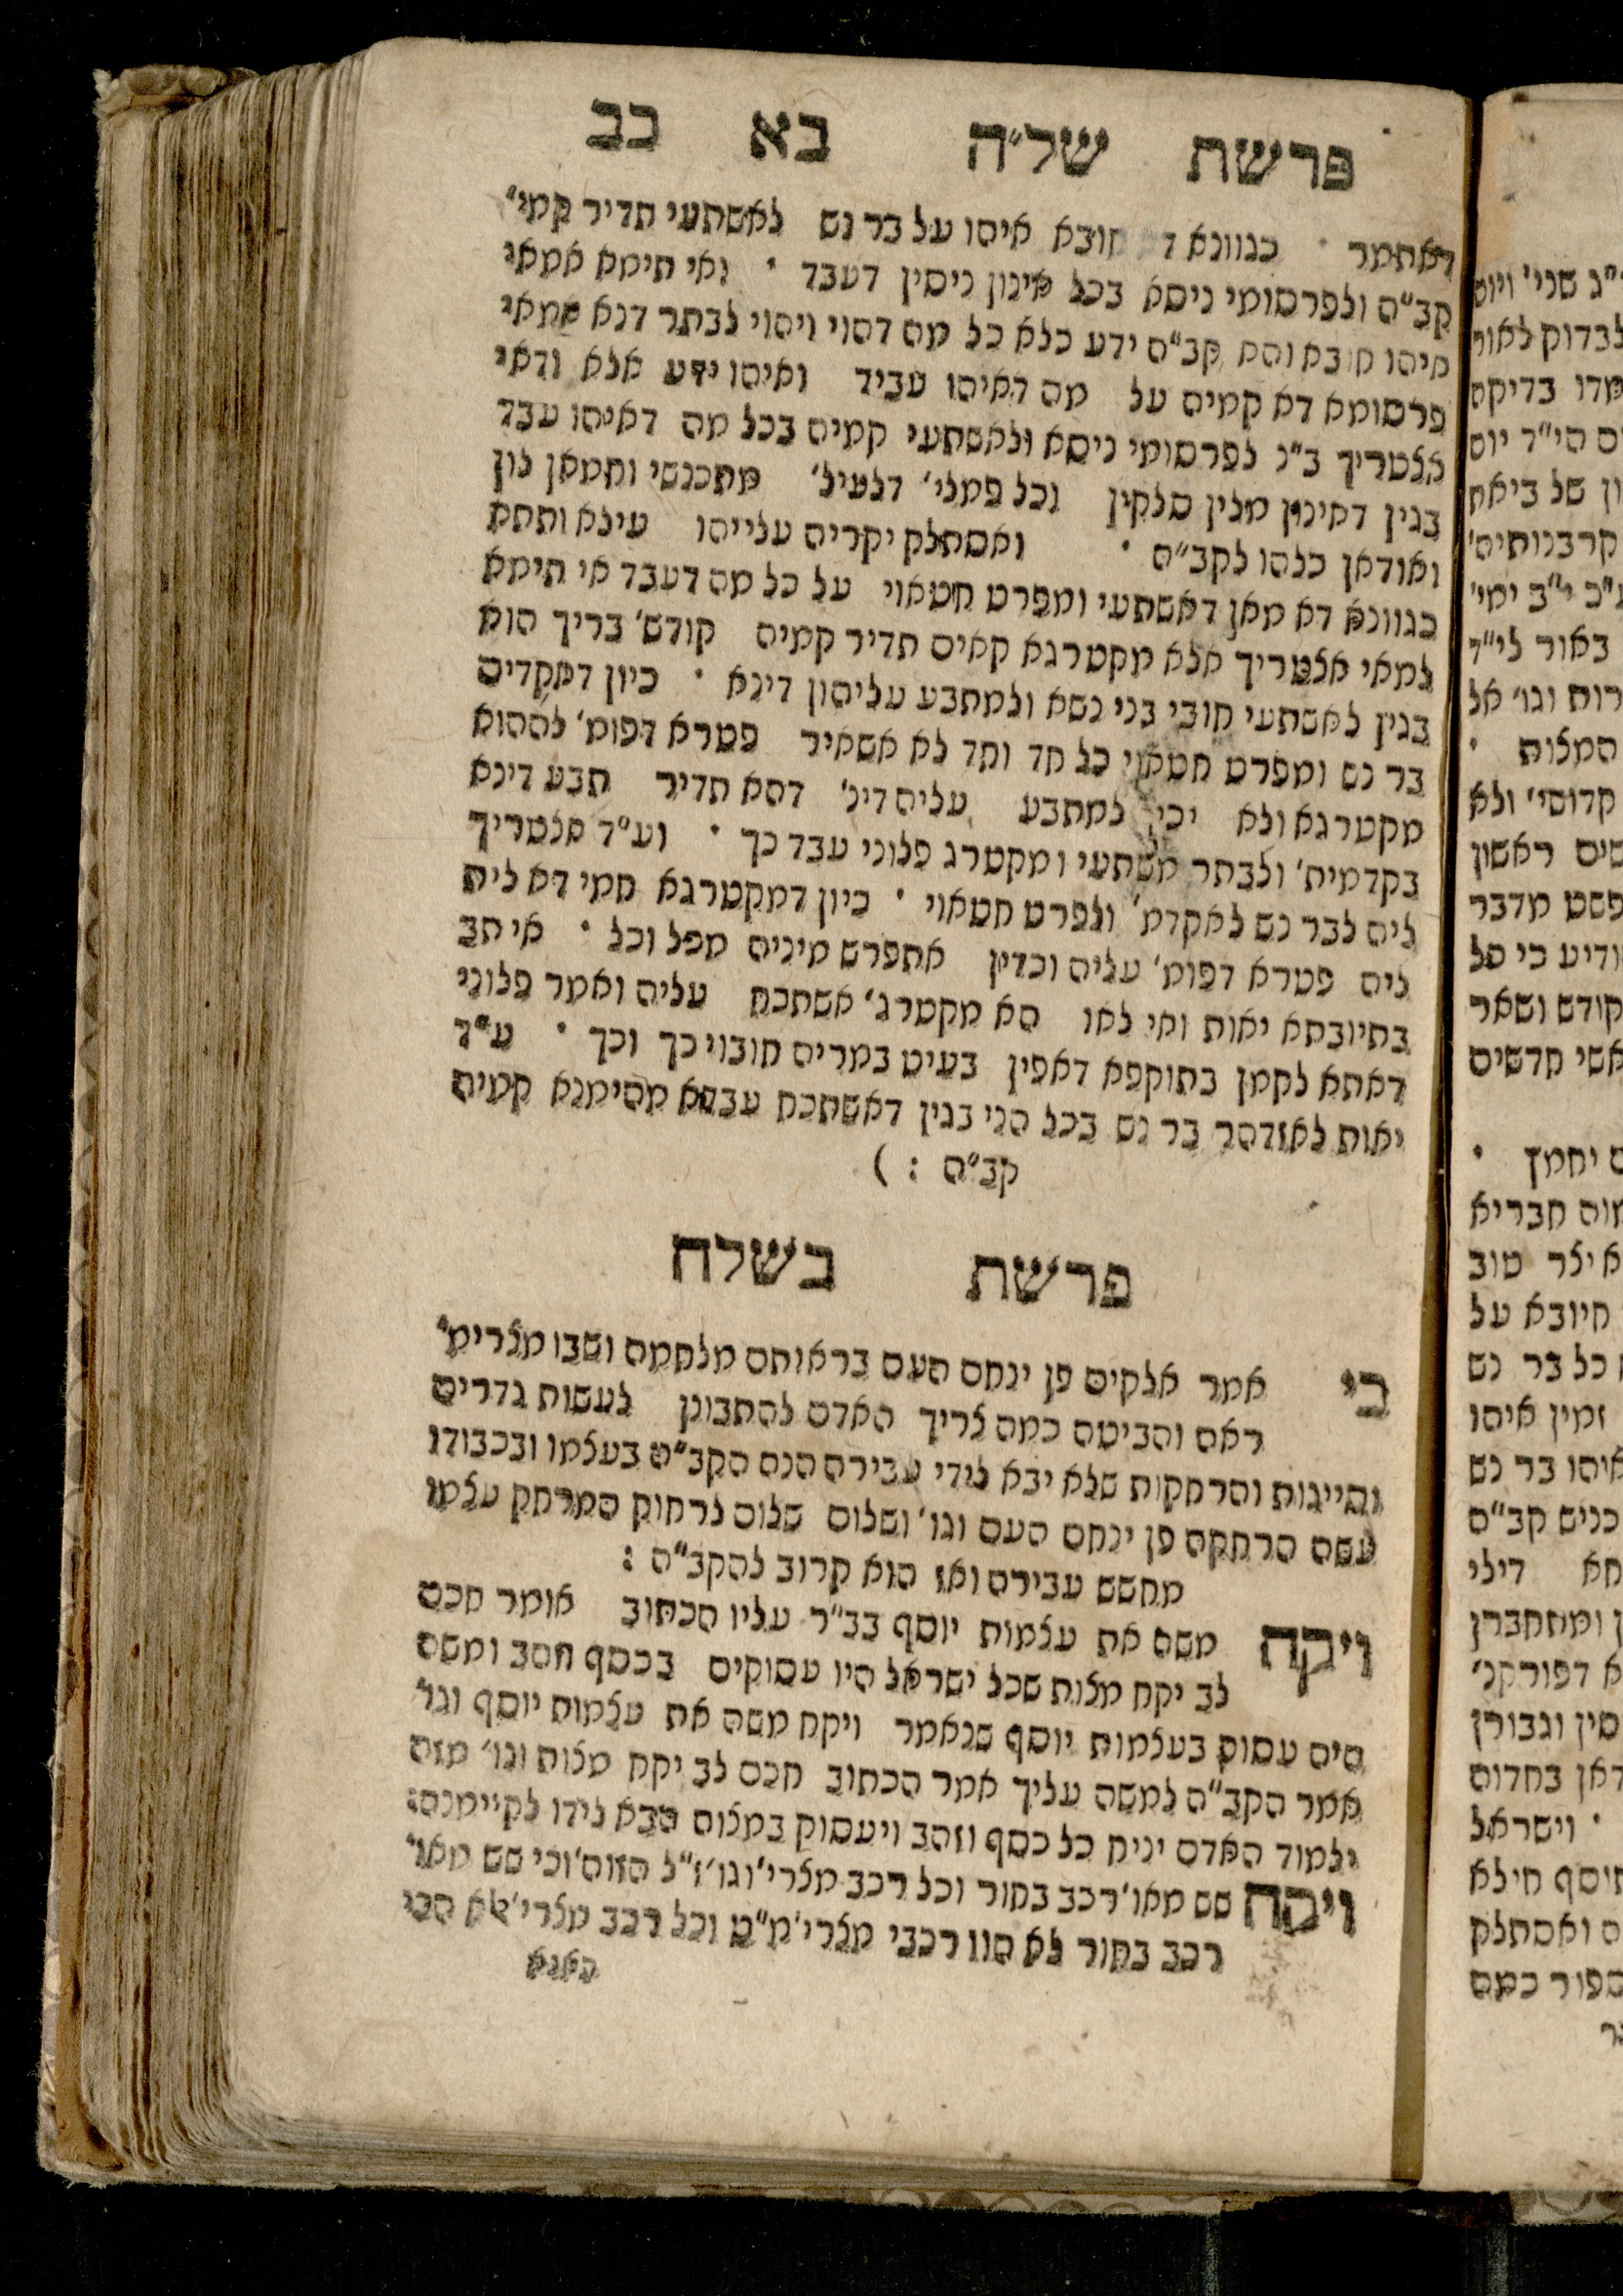 פרשת של״ה בא כב
דאתמר · כגוונא דא חובא איהו על בר נש לאשתעי תדיר קמי׳
קב״ה ולפרסומי ניסא בכל אינון ניסין דעבד · ואי תימא אמאי
איהו חובא והא קב״ה ידע כלא כל מה דהוי ויהוי לבתר דנא אמאי
פרסומא דא קמיה על מה דאיהו עביד ואיהו ידע אלא ודאי
אצטריך ב״נ לפרסומי ניסא ולאשתעי קמיה בכל מה דאיהו עבד
בגין דאינון מלין סלקין וכל פמלי׳ דלעיל׳ מתכנשי וחמאן לון
ואודאן כלהו לקב״ה · ואסתלק יקריה עלייהו עילא ותתא
כגוונא דא מאן דאשתעי ומפרט חטאוי על כל מה דעבד אי תימא
למאי אצטריך אלא מקטרגא קאים תדיר קמיה קודש׳ בריך הוא
בגין לאשתעי חובי בני נשא ולמתבע עליהון דינא · כיון דאקדים
בר נש ומפרט חטאוי כל חד וחד לא אשאיר פטרא דפומ׳ לההוא
מקטרגא ולא יכיל למתבע עליה דינ׳ דהא תדיר תבע דינא
בקדמית׳ ולבתר משתעי ומקטרג פלוני עבד כך · וע״ד אצטריך
ליה לבר נש לאקדמ׳ ולפרט חטאוי · כיון דמקטרגא חמי דא לית
ליה פטרא דפומ׳ עליה וכדין אתפרש מיניה מכל וכל · אי תב
בתיובתא יאות ואי לאו הא מקטרג׳ אשתכח עליה ואמר פלוני
דאתא לקמן בתוקפא דאפין בעיט במריה חובוי כך וכך · ע״ד
יאות לאזדהר בר נש בכל הני בגין דאשתכח עבדא מהימנא קמיה
קב״ה : )
פרשת בשלח
כי אמר אלקים פן ינחם העם בראותם מלחמה ושבו מצרימ׳
ראה והביטה כמה צריך האדם להתבונן לעשות גדרים
וסייגות והרחקות שלא יבא לידי עבירה הנה הקב״ה בעצמו ובכבודו
עשה הרחקה פן ינחם העם וגו׳ ושלום שלום לרחוק המרחק עצמו
מחשש עבירה ואז הוא קרוב להקב״ה :
ויקח משה את עצמות יוסף בב״ר עליו הכתוב אומר חכם
לב יקח מצות שכל ישראל היו עסוקים בכסף וזהב ומשה
היה עסוק בעצמות יוסף שנאמר ויקח משה את עצמות יוסף וגו׳
אמר הקב״ה למשה עליך אמר הכתוב חכם לב יקח מצות וגו׳ מזה
ילמוד האדם יניח כל כסף וזהב ויעסוק במצוה הבא לידו לקיימנה:
ויקח שש מאו׳ רכב בחור וכל רכב מצרי׳ וגו׳ ז״ל הזוה׳ וכי שש מאו׳
רכב בחור לא הוו רכבי מצרי׳ מ״ט וכל רכב מצרי׳ אלא הכי